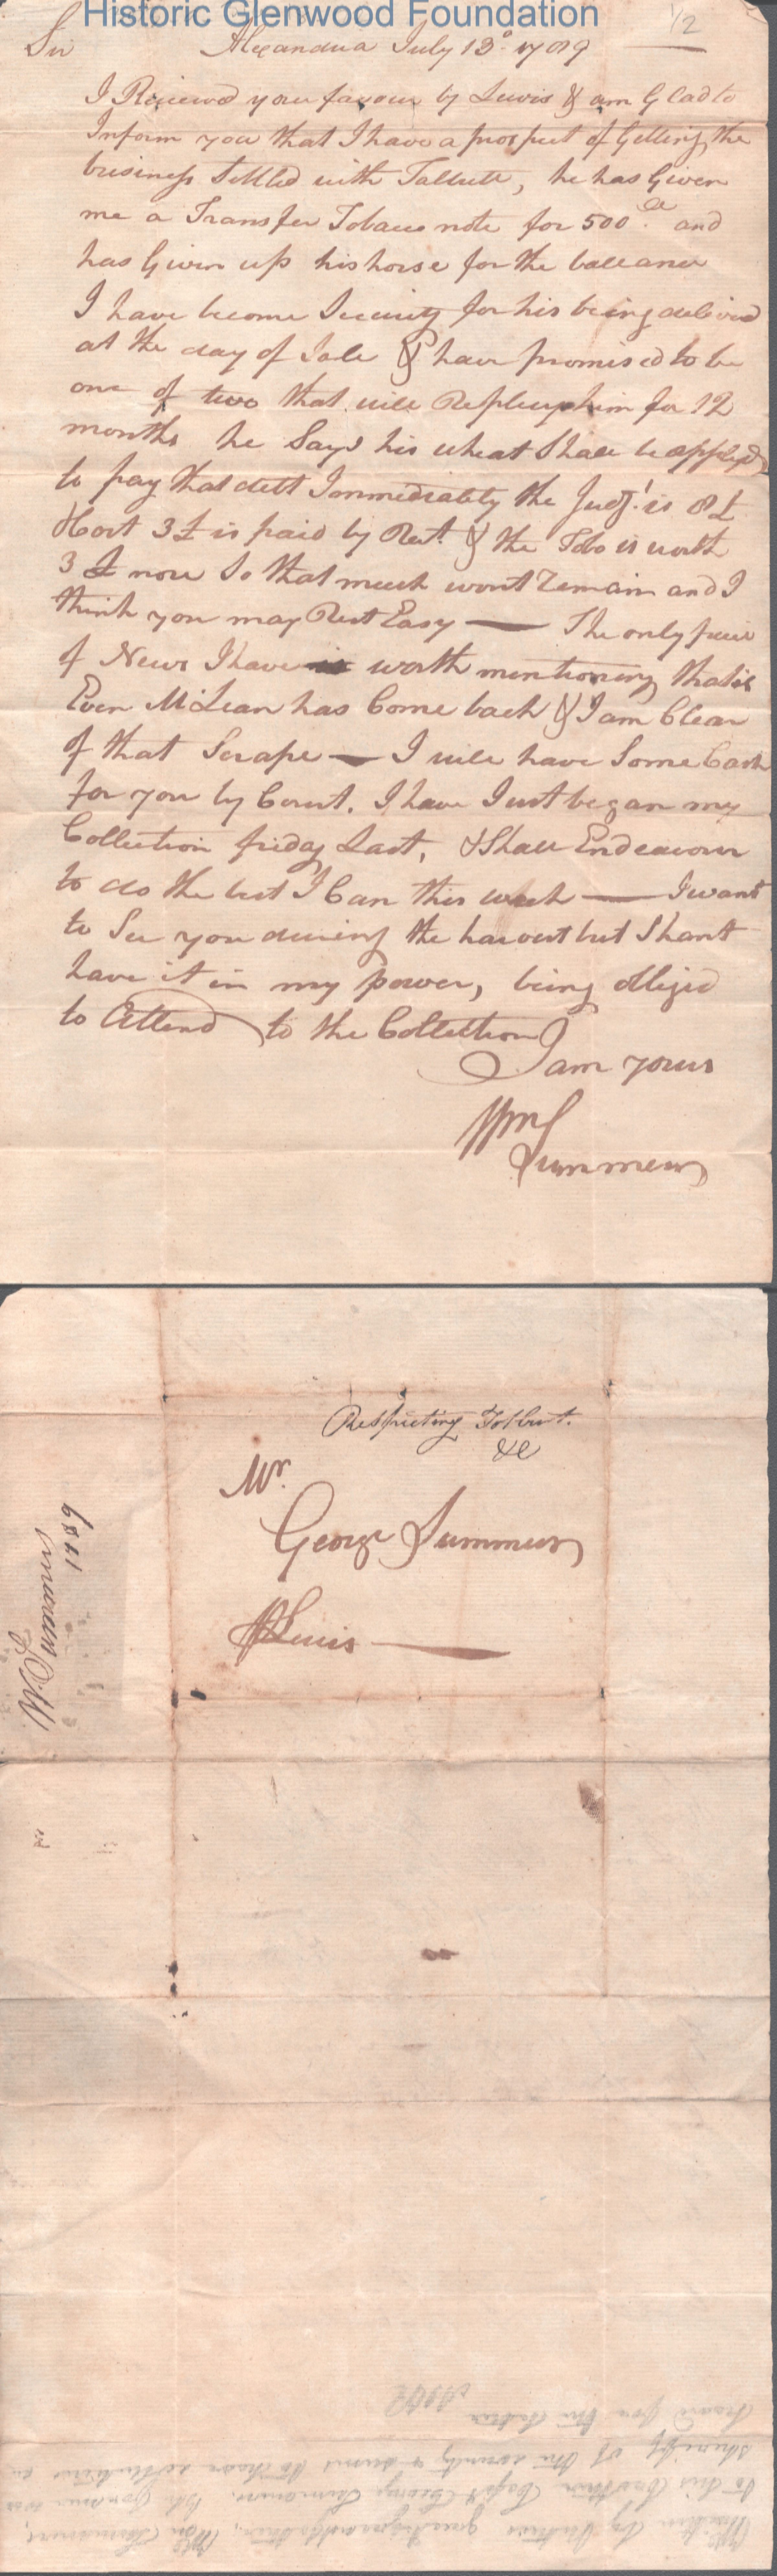 Historic Glenwood Foundation
1/2
Sir Alexandria July 13º 1789
I Received your favour by Lewis & am Glad to
Inform you that I have a prospect of Getting the
business Settled with Talbutt, he has Given
me a Transfer Tobacco note for 500 and
has Given up his horse for the balleance
I have become Security for his being delivered
at the day of Sale & have promised to be
one of two that will Replevy him for 12
months he Says his wheat Shall be applyed
to pay that debt Immediately the Judgt. is 8£
Cost 3£ is paid by Rect. & the Tobo is worth
3£ now So that much wont Remain and I
think you may Rest Easy — The only piece
of News I have worth mentioning that is
Even McLean has Come back & I am Clear
of that Scrape — I will have Some Cash
for you by Court. I have Just began my
Collection friday Last, & Shall Endeavour
to do the best I Can this week — I want
to See you during the harvest but Shant
have it in my power, being obliged
to Attend to the Collection
I am yours
Wm
Summers
Respecting Tolbut.
&c
Mr.
George Summers
Lewis —
Wm
Summers
1789
Written by father's great grandfather, Wm Summers,
to his brother Capt George Summers. Wm Summers was
sheriff of the county &